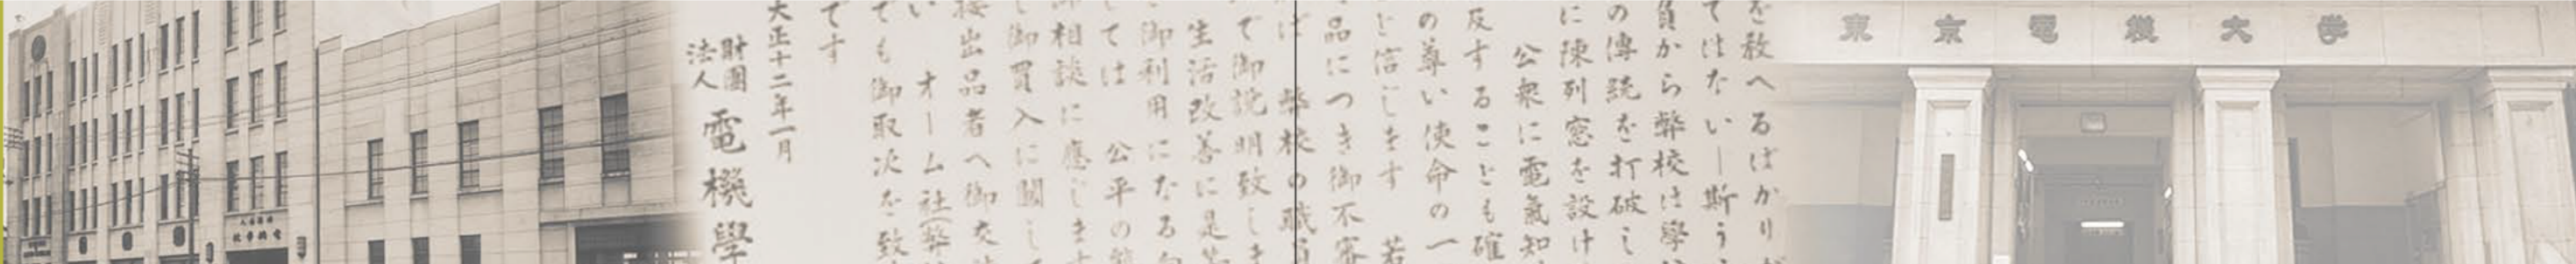 東京電機大学
を敎へるばかり
てはない―斯う
員から弊校は學
の傳統を打破し
に陳列窓を設け
公衆に電氣知
反することも確
の尊い使命の一
と信じます 若
品につき御不審
ば 弊校の職
で御說明致しま
生活改善に是
御利用になる
ては 公平の
御相談に應じま
御買入に關し
接出品者へ御交
い オーム社(弊
ても御取次を致
です
大正十二年一月
財團法人 電機學